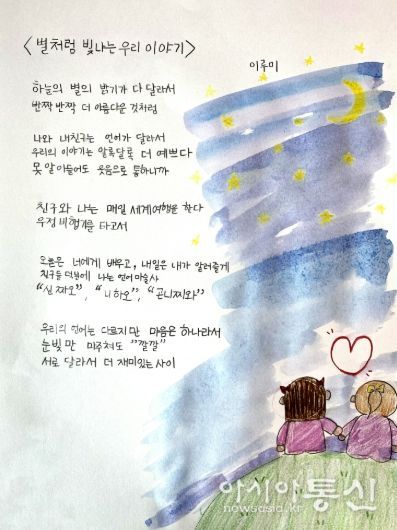 <별처럼 빛나는 우리 이야기>
이루미
하늘의 별의 밝기가 다 달라서
반짝 반짝 더 아름다운 것처럼
나와 내친구는 언어가 달라서
우리의 이야기는 알록달록 더 예쁘다
못 알아들어도 웃음으로 통하니까
친구와 나는 매일 세계여행을 한다
우정 비행기를 타고서
오늘은 너에게 배우고, 내일은 내가 알려줄게
친구들 덕분에 나는 언어마술사
"신짜오", "니하오", "곤니찌와"
우리의 언어는 다르지만 마음은 하나라서
눈빛만 마주쳐도 "깔깔"
서로 달라서 더 재미있는 사이
아시아통신
newsasia.kr